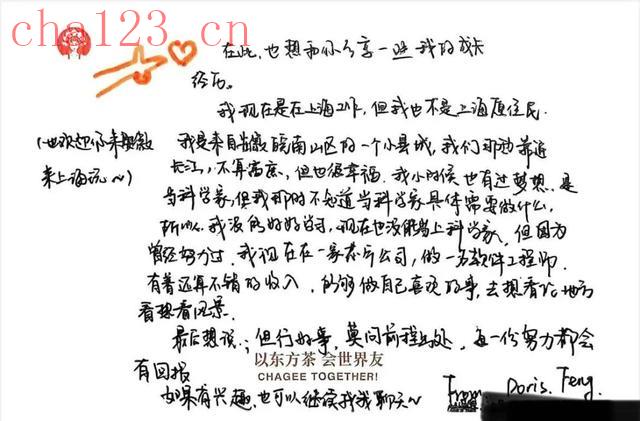 cha123.cn
在此,也想和你分享一些我的成长
经历。
我现在是在上海工作,但我也不是上海原住民。
(也欢迎你来安徽
来上海玩~)
我是来自安徽皖南山区的一个小县城,我们那边靠近
长江,不算富庶,但也很幸福。我小时候也有过梦想,是
当科学家,但我那时不知道当科学家具体需要做什么,
所以我没的好好学习,现在也没能当上科学家,但因为
曾经努力过,我现在在一家 公司,做一名软件工程师.
有着还算不错的收入,能够做自己喜欢的事,去想看的地方
看想看的风景.
最后想说:但行好事,莫问前程 处,每一份努力都会
有回报
以东方茶 会世界友
CHAGEE TOGETHER!
如果有兴趣,也可以继续找我聊天~ From Doris. Feng.